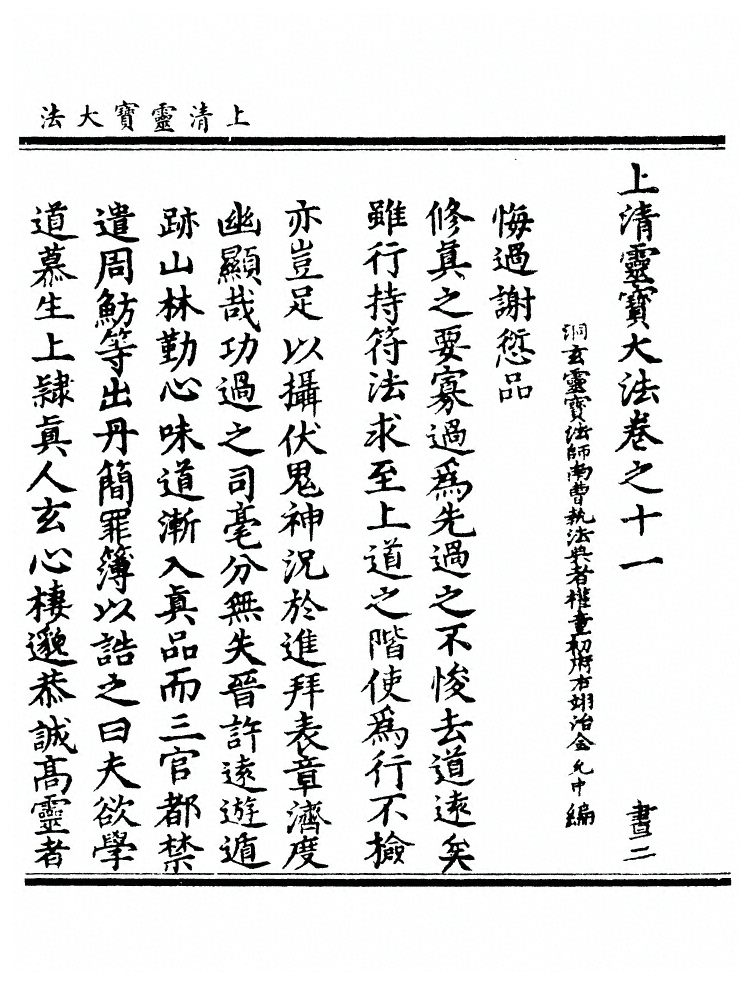 上清靈寶大法
上清靈寶大法卷之十一 晝二
洞玄靈寶法師南曹執法典者權童初府右翊治金允中編
悔過謝愆品
修眞之要寡過爲先過之不悛去道遠矣
雖行持符法求至上道之階使爲行不檢
亦豈足以攝伏鬼神況於進拜表章濟度
幽顯哉功過之司毫分無失晉許遠遊遁
跡山林勤心味道漸入眞品而三官都禁
遣周魴等出丹簡罪簿以誥之曰夫欲學
道慕生上隸眞人玄心棲邈恭誠高靈者